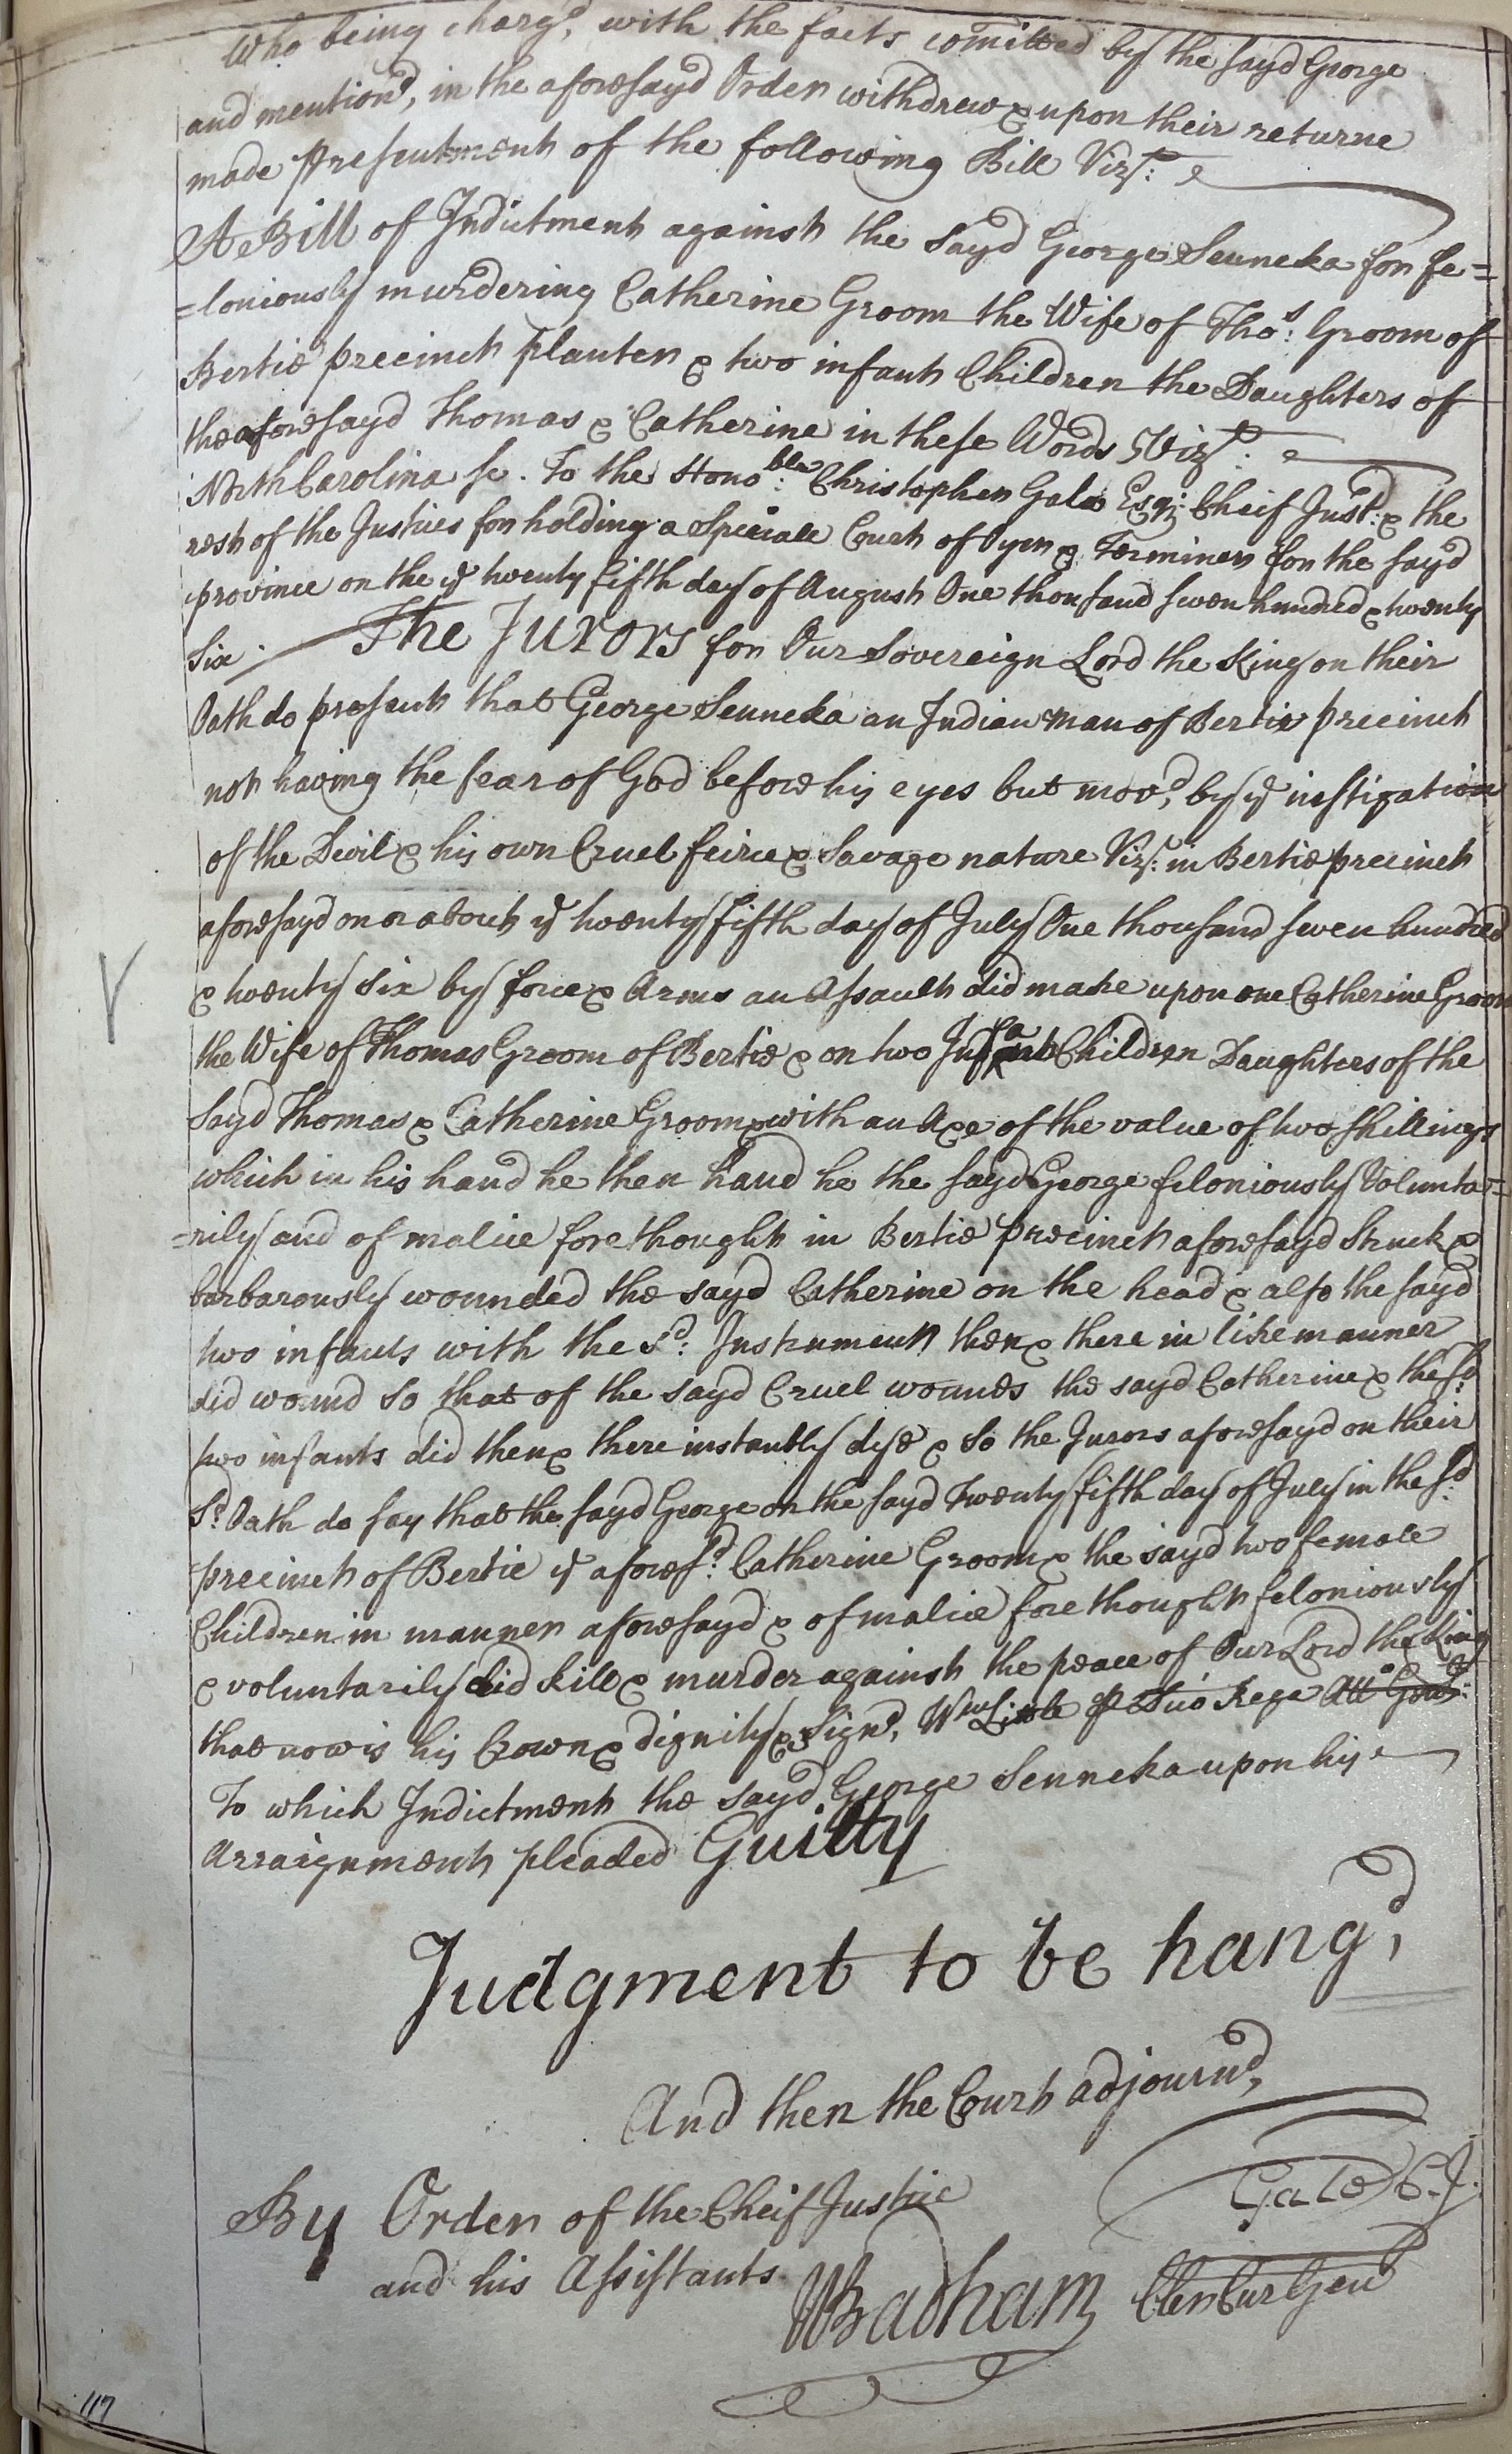 Who being charg'd, with the facts comitted by the sayd George
and mention'd, in the aforesayd Order withdrew & upon their returne
made presentment of the following Bill Vizt:
A Bill of Indictment against the sayd George Senneka for fe=
=loniously murdering Catherine Groom the Wife of Thos: Groom of
Bertie precinct planter & two infant Children the Daughters of
the aforesayd Thomas & Catherine in these Words Vizt:
North Carolina sc. To the Honoble: Christopher Gale Esqr: Cheif Just: & the
rest of the Justices for holding a Speciall Court of Oyer & Terminer for the sayd
province on the ye twenty fifth day of August One thousand seven hundred & twenty
six. The Jurors for Our Sovereign Lord the King on their
Oath do present that George Senneka an Indian man of Bertie precinct
not having the fear of God before his eyes but mov'd, by ye instigation
of the Devil & his own Cruel feirce & Savage nature Vizt: in Bertie precinct
aforesayd on or about ye twenty fifth day of July One thousand seven hundred
& twenty six by force & Arms an Assault did make upon one Catherine Groom
the Wife of Thomas Groom of Bertie & on two Infant Children Daughters of the
sayd Thomas & Catherine Groom & with an Axe of the value of two shillings
which in his hand he then haud he the sayd George feloniously Volunta=
=rily and of malice forethought in Bertie precinct aforesayd Struck &
barbarously wounded the sayd Catherine on the head & also the sayd
two infants with the sd: Instrument then & there in like manner
did wound so that of the sayd Cruel wounds the sayd Catherine & the sd
two infants did then & there instantly dye & so the Jurors aforesayd on their
sd: Oath do say that the sayd George on the sayd Twenty fifth day of July in the sd:
precinct of Bertie ye aforesd: Catherine Groom & the sayd two female
Children in manner aforesayd & of malice forethought feloniously
& voluntarily did kill & murder against the peace of Our Lord the King
that now is his Crown & dignity & Sign'd, Wm Little Att Genl:
To which Indictment the sayd George Senneka upon his
Arraignment pleaded Guilty
Judgment to be hang'd,
And then the Court adjourn'd,
Gale C. J.
By Order of the Cheif Justice
and his Assistants
WBadham Cler Cur Genl
117